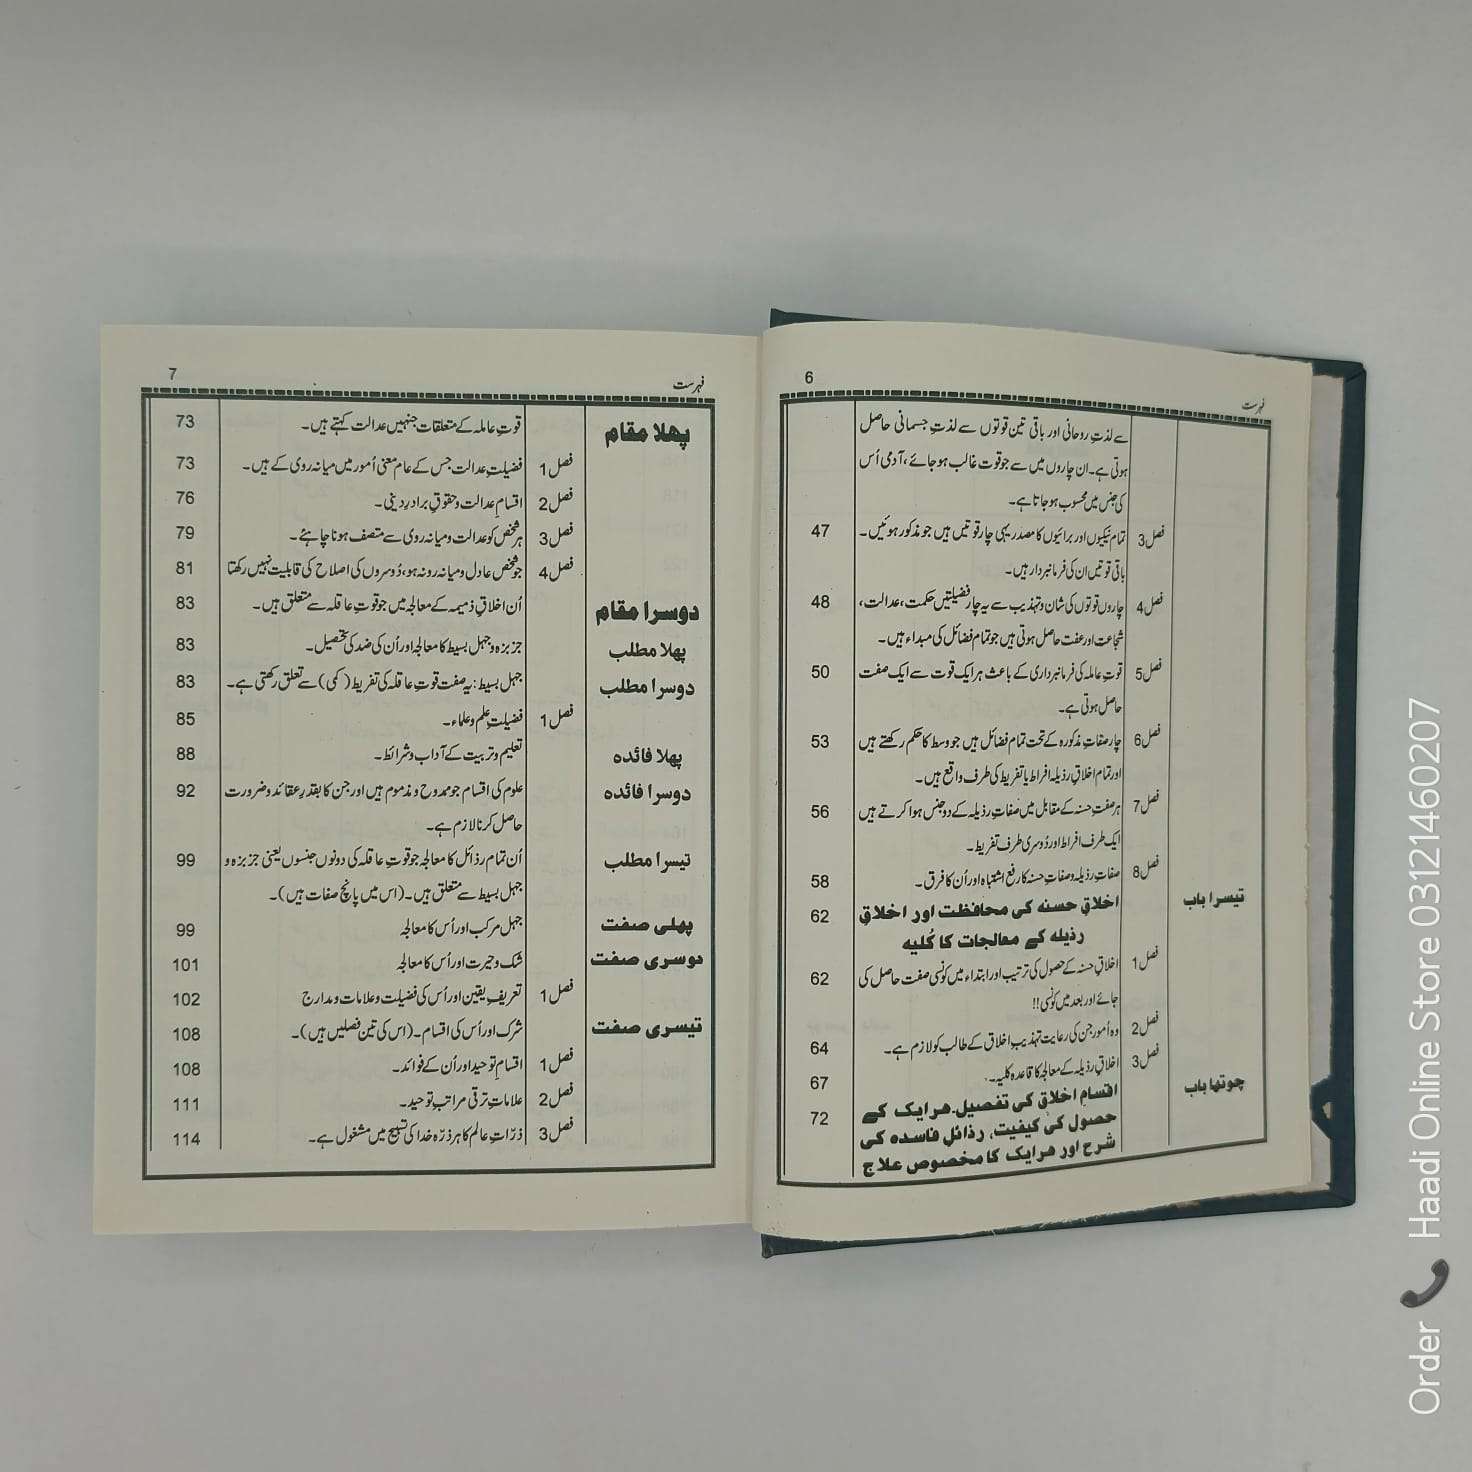 6
فہرست
سے لذتِ روحانی اور باقی تین قوتوں سے لذتِ جسمانی حاصل
ہوتی ہے۔ ان چاروں میں سے جو قوت غالب ہو جائے، آدمی اُس
کی جنس میں محسوب ہو جاتا ہے۔
فصل 3 تمام نیکیوں اور برائیوں کا مصدر یہی چار قوتیں ہیں جو مذکور ہوئیں۔ 47
باقی قوتیں ان کی فرمانبردار ہیں۔
فصل 4 چاروں قوتوں کی شان و تہذیب سے یہ چار فضیلتیں حکمت، عدالت، 48
شجاعت اور عفت حاصل ہوتی ہیں جو تمام فضائل کی مبداء ہیں۔
فصل 5 قوتِ عاملہ کی فرمانبرداری کے باعث ہر ایک قوت سے ایک صفت 50
حاصل ہوتی ہے۔
فصل 6 چار صفاتِ مذکورہ کے تحت تمام فضائل ہیں جو وسط کا حکم رکھتے ہیں 53
اور تمام اخلاقِ رذیلہ افراط یا تفریط کی طرف واقع ہیں۔
فصل 7 ہر صفتِ حسنہ کے مقابل میں صفاتِ رذیلہ کے دو جنس ہوا کرتے ہیں 56
ایک طرف افراط اور دُوسری طرف تفریط۔
فصل 8 صفاتِ رذیلہ و صفاتِ حسنہ کا رفع اشتباہ اور اُن کا فرق۔ 58
تیسرا باب اخلاقِ حسنہ کی محافظت اور اخلاقِ 62
رذیلہ کے معالجات کا کُلیہ
فصل 1 اخلاقِ حسنہ کے حصول کی ترتیب اور ابتداء میں کونسی صفت حاصل کی 62
جائے اور بعد میں کونسی!!
فصل 2 وہ اُمور جن کی رعایت تہذیبِ اخلاق کے طالب کو لازم ہے۔ 64
فصل 3 اخلاقِ رذیلہ کے معالجہ کا قاعدہ کلیہ۔ 67
چوتھا باب اقسامِ اخلاق کی تفصیل۔ ہر ایک کے 72
حصول کی کیفیت، رذائلِ فاسدہ کی
شرح اور ہر ایک کا مخصوص علاج
7
فہرست
پہلا مقام قوتِ عاملہ کے متعلقات جنہیں عدالت کہتے ہیں۔ 73
فصل 1 فضیلتِ عدالت جس کے عام معنی اُمور میں میانہ روی کے ہیں۔ 73
فصل 2 اقسامِ عدالت و حقوقِ برادرِ دینی۔ 76
فصل 3 ہر شخص کو عدالت و میانہ روی سے متصف ہونا چاہئے۔ 79
فصل 4 جو شخص عادل و میانہ رو نہ ہو، دُوسروں کی اصلاح کی قابلیت نہیں رکھتا 81
دوسرا مقام اُن اخلاقِ ذمیمہ کے معالجہ میں جو قوتِ عاقلہ سے متعلق ہیں۔ 83
پہلا مطلب جزبزہ و جہلِ بسیط کا معالجہ اور اُن کی ضد کی تحصیل۔ 83
دوسرا مطلب جہلِ بسیط: یہ صفت قوتِ عاقلہ کی تفریط (کمی) سے تعلق رکھتی ہے۔ 83
فصل 1 فضیلتِ علم و علماء۔ 85
پہلا فائدہ تعلیم و تربیت کے آداب و شرائط۔ 88
دوسرا فائدہ علوم کی اقسام جو ممدوح و مذموم ہیں اور جن کا بقدرِ عقائد و ضرورت 92
حاصل کرنا لازم ہے۔
تیسرا مطلب اُن تمام رذائل کا معالجہ جو قوتِ عاقلہ کی دونوں جنسوں یعنی جزبزہ و 99
جہلِ بسیط سے متعلق ہیں۔ (اس میں پانچ صفات ہیں)۔
پہلی صفت جہلِ مرکب اور اُس کا معالجہ 99
دوسری صفت شک و حیرت اور اُس کا معالجہ 101
فصل 1 تعریفِ یقین اور اُس کی فضیلت و علامات و مدارج 102
تیسری صفت شرک اور اُس کی اقسام۔ (اس کی تین فصلیں ہیں)۔ 108
فصل 1 اقسامِ توحید اور اُن کے فوائد۔ 108
فصل 2 علاماتِ ترقی مراتبِ توحید۔ 111
فصل 3 ذرّاتِ عالم کا ہر ذرّہ خدا کی تسبیح میں مشغول ہے۔ 114
Order Haadi Online Store 03121460207